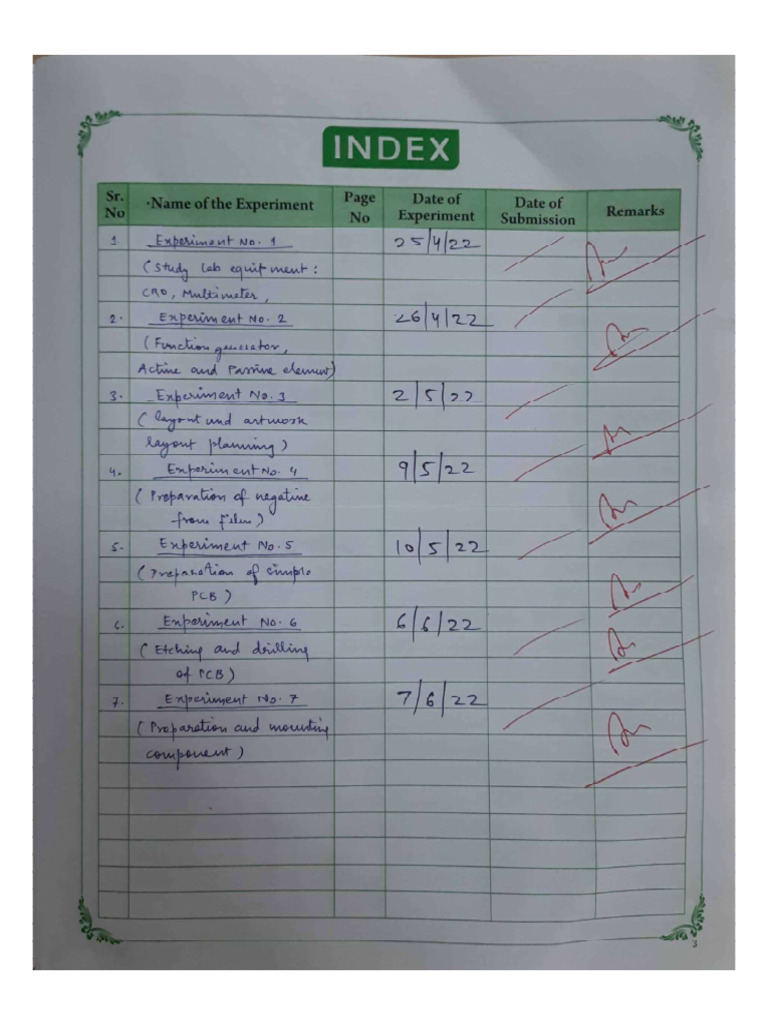 INDEX
Sr. No ·Name of the Experiment Page No Date of Experiment Date of Submission Remarks
1. Experiment No. 1 25/4/22
(Study Lab equipment :
CRO, Multimeter,
2. Experiment No. 2 26/4/22
(Function generator,
Active and Passive element)
3. Experiment No. 3 2/5/22
( layout and artwork
layout planning )
4. Experiment No. 4 9/5/22
( Preparation of negative
from film )
5. Experiment No. 5 10/5/22
( Preparation of simple
PCB )
6. Experiment No. 6 6/6/22
( Etching and drilling
of PCB )
7. Experiment No. 7 7/6/22
( Preparation and mounting
component )
3